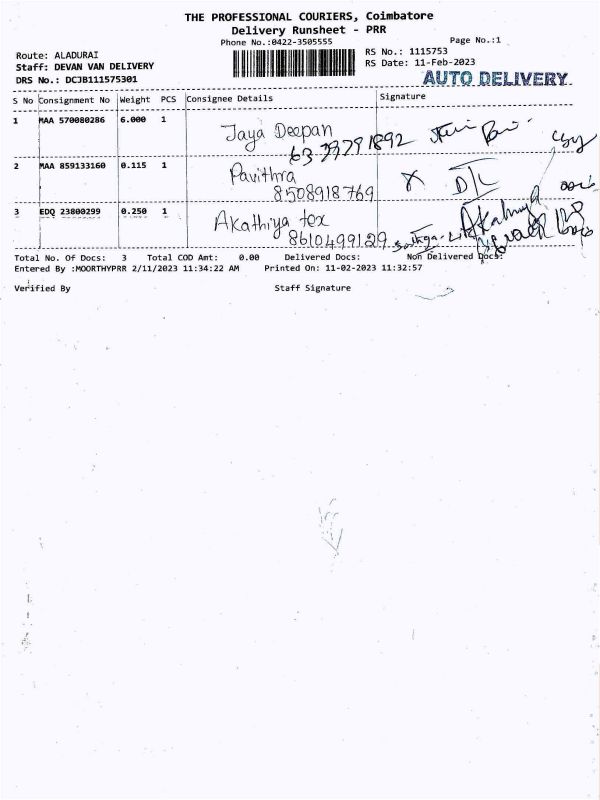 THE PROFESSIONAL COURIERS, Coimbatore
Delivery Runsheet - PRR
Phone No.:0422-3505555 Page No.:1
Route: ALADURAI RS No.: 1115753
Staff: DEVAN VAN DELIVERY RS Date: 11-Feb-2023
DRS No.: DCJB111575301 AUTO DELIVERY
S No Consignment No Weight PCS Consignee Details Signature
1 MAA 570080286 6.000 1
Jaya Deepan
2 MAA 859133160 0.115 1
Pavithra
8508918769
3 EDQ 23800299 0.250 1
Akathiya tex
8610499129
Total No. Of Docs: 3 Total COD Amt: 0.00 Delivered Docs: Non Delivered Docs:
Entered By :MOORTHYPRR 2/11/2023 11:34:22 AM Printed On: 11-02-2023 11:32:57
Verified By Staff Signature